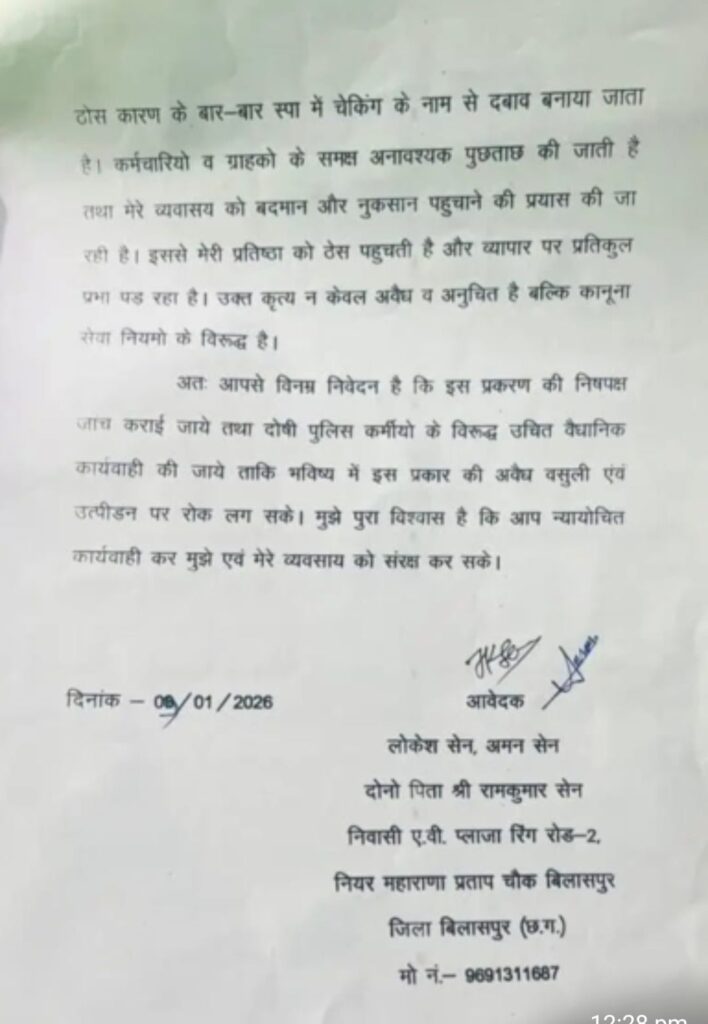 ठोस कारण के बार–बार स्पा में चेकिंग के नाम से दबाव बनाया जाता
है। कर्मचारियो व ग्राहको के समक्ष अनावश्यक पुछताछ की जाती है
तथा मेरे व्यवासय को बदमान और नुकसान पहुचाने की प्रयास की जा
रही है। इससे मेरी प्रतिष्ठा को ठेस पहुचती है और व्यापार पर प्रतिकुल
प्रभा पड रहा है। उक्त कृत्य न केवल अवैध व अनुचित है बल्कि कानूना
सेवा नियमो के विरूद्ध है।
अतः आपसे विनम्र निवेदन है कि इस प्रकरण की निषपक्ष
जांच कराई जाये तथा दोषी पुलिस कर्मीयो के विरूद्ध उचित वैधानिक
कार्यवाही की जाये ताकि भविष्य में इस प्रकार की अवैध वसुली एंवं
उत्पीडन पर रोक लग सके। मुझे पुरा विश्वास है कि आप न्यायोचित
कार्यवाही कर मुझे एवं मेरे व्यवसाय को संरक्ष कर सके।
दिनांक – /01/2026
आवेदक
लोकेश सेन, अमन सेन
दोनो पिता श्री रामकुमार सेन
निवासी ए.वी. प्लाजा रिंग रोड–2,
नियर महाराणा प्रताप चौक बिलासपुर
जिला बिलासपुर (छ.ग.)
मो नं.– 9691311687
12:28 pm